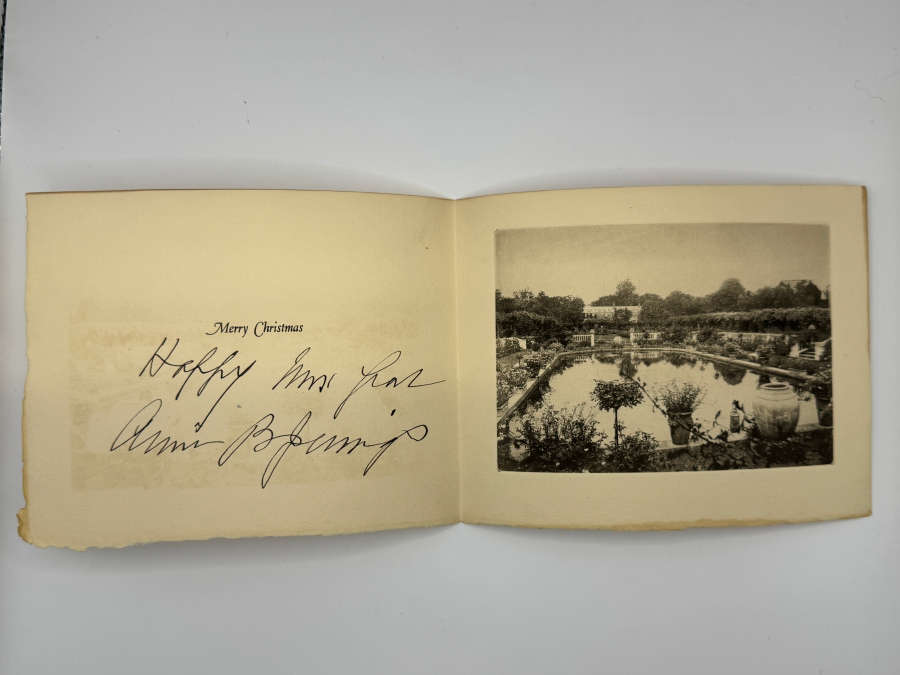 Merry Christmas
Happy New Year
Annie B Jennings